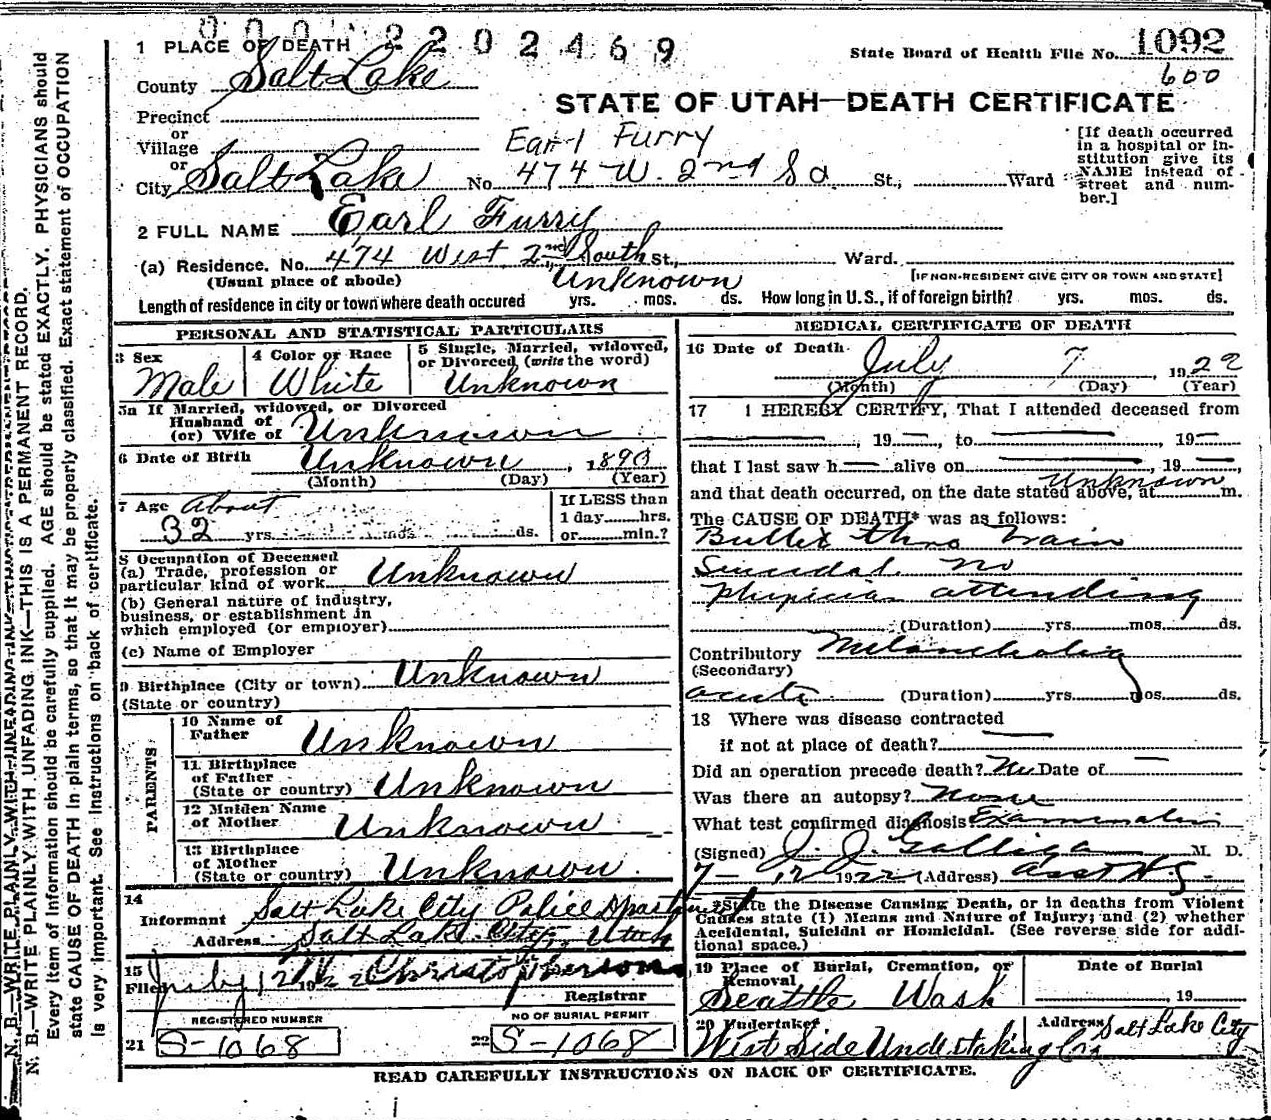 0 0 0 2 2 0 2 4 6 9
State Board of Health File No. 1092
600
1 PLACE OF DEATH
County Salt Lake
STATE OF UTAH—DEATH CERTIFICATE
Precinct
or
Village
or
City Salt Lake No. 474 W. 2nd So St., Ward
Earl Furry
[If death occurred in a hospital or in-
stitution give its
NAME instead of
street and num-
ber.]
2 FULL NAME Earl Furry
(a) Residence. No. 474 West 2nd South St., Ward.
(Usual place of abode) Unknown [IF NON-RESIDENT GIVE CITY OR TOWN AND STATE]
Length of residence in city or town where death occured yrs. mos. ds. How long in U. S., if of foreign birth? yrs. mos. ds.
PERSONAL AND STATISTICAL PARTICULARS
3 Sex Male
4 Color or Race White
5 Single, Married, widowed, or Divorced (write the word) Unknown
5a If Married, widowed, or Divorced
Husband of
(or) Wife of Unknown
6 Date of Birth Unknown, 1890
(Month) (Day) (Year)
7 Age About
32 yrs. mds ds.
If LESS than
1 day hrs.
or min.?
8 Occupation of Deceased
(a) Trade, profession or
particular kind of work Unknown
(b) General nature of industry,
business, or establishment in
which employed (or employer)
(c) Name of Employer
9 Birthplace (City or town) Unknown
(State or country)
PARENTS
10 Name of
Father Unknown
11 Birthplace
of Father
(State or country) Unknown
12 Maiden Name
of Mother Unknown
13 Birthplace
of Mother
(State or country) Unknown
14
Informant Salt Lake City Police Department
Address Salt Lake City, Utah
15
Filed July 12 1922 Christophersons
Registrar
REGISTERED NUMBER
21 S-1068
NO OF BURIAL PERMIT
22 S-1068
MEDICAL CERTIFICATE OF DEATH
16 Date of Death July 7 1922
(Month) (Day) (Year)
17 I HEREBY CERTIFY, That I attended deceased from
— , 19 —, to — , 19 —
that I last saw h— alive on — , 19 —,
and that death occurred, on the date stated above, at Unknown m.
The CAUSE OF DEATH* was as follows:
Bullet thro brain
Suicidal. No
Physician attending
(Duration) yrs. mos. ds.
Contributory Melancholia
(Secondary)
acute (Duration) yrs. mos. ds.
18 Where was disease contracted
if not at place of death? —
Did an operation precede death? No Date of —
Was there an autopsy? None
What test confirmed diagnosis Examination
(Signed) J. J. Galligan M. D.
7-12 1922 (Address) Asst H S
*State the Disease Causing Death, or in deaths from Violent
Causes state (1) Means and Nature of Injury; and (2) whether
Accidental, Suicidal or Homicidal. (See reverse side for addi-
tional space.)
19 Place of Burial, Cremation, or
Removal
Seattle Wash
Date of Burial
19
20 Undertaker
West Side Undertaking Co
Address Salt Lake City
READ CAREFULLY INSTRUCTIONS ON BACK OF CERTIFICATE.
N. B.—WRITE PLAINLY WITH UNFADING INK—THIS IS A PERMANENT RECORD.
N. B.—WRITE PLAINLY WITH UNFADING INK—THIS IS A PERMANENT RECORD.
Every item of information should be carefully supplied. AGE should be stated EXACTLY. PHYSICIANS should
state CAUSE OF DEATH in plain terms, so that it may be properly classified. Exact statement of OCCUPATION
is very important. See instructions on back of certificate.